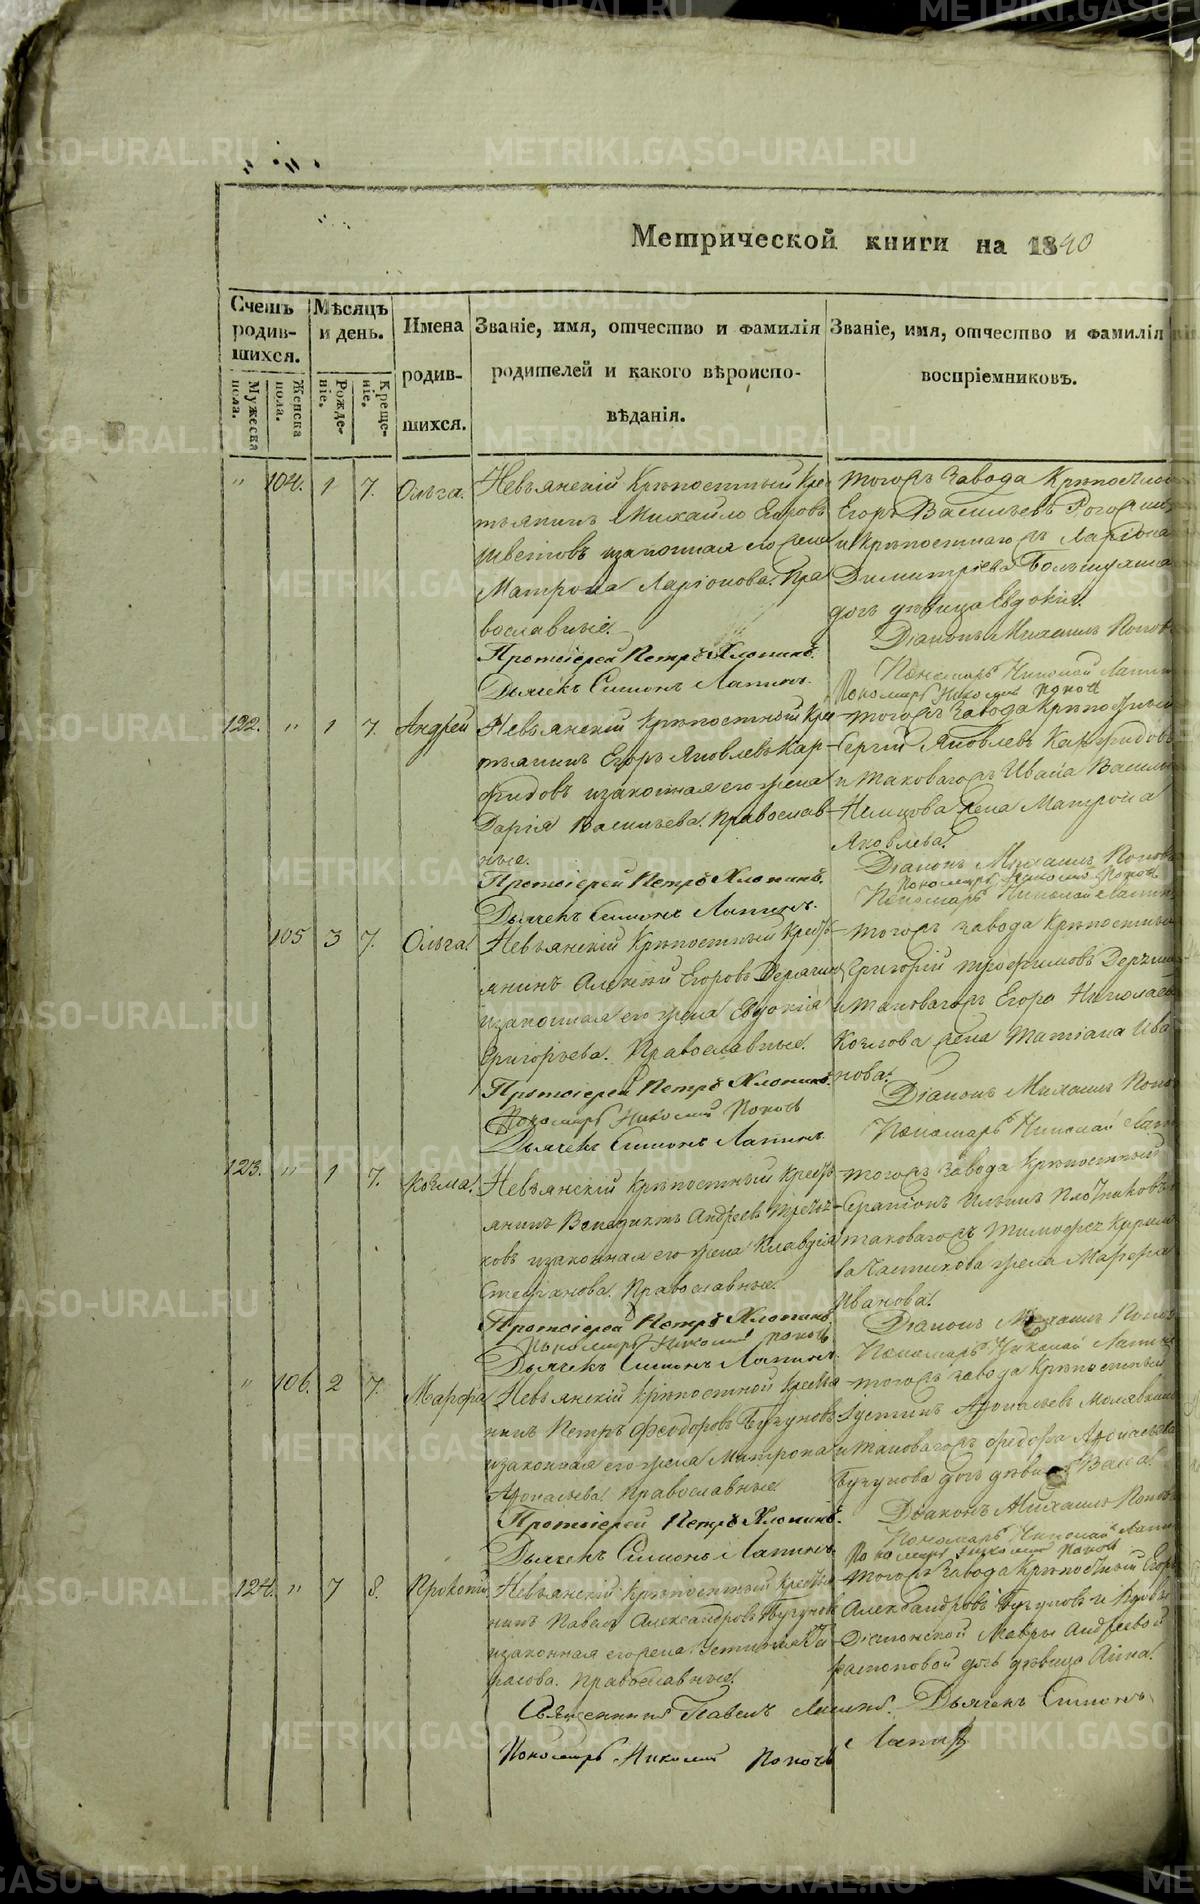 Метрической книги на 1840
Счетъ родив-шихся.
Мужеска пола.
Женска пола.
Мѣсяцъ и день.
Рожде-ніе.
Креще-ніе.
Имена родив-шихся.
Званіе, имя, отчество и фамилія
родителей и какого вѣроиспо-
вѣданія.
Званіе, имя, отчество и фамилія
воспріемниковъ.
" 104. 1 7. Ольга.
Невьянскій Крѣпостный Кре-
тьянинъ Михайло Егоровъ
изаконная его жена
Матрона Ларіонова. Пра
вославные.
Протоіерей Петръ Хлопинъ.
Дьячекъ Симонъ Лапинъ.
тогожъ Завода
Егоръ Васильевъ
и Крѣпостнаго Ларіона
Димитріева
дочь дѣвица Евдокія.
Діаконъ Михаилъ Попов
Пономарь Николай Лапин
Пономарь Николай Попов
122. " 1 7. Андрей
Невьянскій Крѣпостный Крес
тьянинъ Егоръ Яковлевъ Кар-
фидовъ изаконная его жена
Дарія Васильева. Православ-
ные.
Протоіерей Петръ Хлопинъ.
Дьячекъ Симонъ Лапинъ.
тогожъ Завода Крѣпостный
Сергій Яковлевъ Карфидовъ
и таковагожъ Ивана Василье
Немцова жена Матрона
Яковлева.
Діаконъ Михаилъ Поповъ
Пономарь Николай Попов
Пономарь Николай Лапин
105 3 7. Ольга.
Невьянскій Крѣпостный Кресть-
янинъ Алексій Егоровъ
изаконная его жена Евдокія
Григорьева. Православные.
Протоіерей Петръ Хлопинъ.
Пономарь Николай Поповъ
Дьячекъ Симонъ Лапинъ.
тогожъ завода Крѣпостный
Григорій Трофимовъ
и таковагожъ Егора Николаева
Козлова жена Татіана Ива
нова.
Діаконъ Михаилъ Попов
Пономарь Николай Лапин
123. " 1 7. Козма.
Невьянскій Крѣпостный Кресть-
янинъ Венедиктъ Андреевъ
ковъ изаконная его жена Клавдія
Степанова. Православные.
Протоіерей Петръ Хлопинъ.
Пономарь Николай Поповъ
Дьячекъ Симонъ Лапинъ.
тогожъ Завода Крѣпостный
Серапіонъ Ильинъ Плотниковъ
таковагожъ Тимофея
жена Марфа
Иванова.
Діаконъ Михаилъ Попов
Пономарь Николай Лапин
" 106. 2 7. Марфа
Невьянскій Крѣпостной Крестья
нинъ Петръ Феодоровъ Бучуновъ
изаконная его жена Матрона
Афонасьева. Православные.
Протоіерей Петръ Хлопинъ.
Дьячекъ Симонъ Лапинъ.
тогожъ завода Крѣпостный
Іустинъ Афонасьевъ
и таковагожъ Федора Афонасьева
Бучунова дочь дѣвица
Діаконъ Михаилъ Попов
Пономарь Николай Лапин
Пономарь Николай Попов
124. " 7 8. Прокопій.
Невьянскій Крѣпостный Крестья
нинъ Павелъ Александровъ Бучунов
изаконная его жена
Православные.
Священникъ Павелъ
Пономарь Николай Поповъ
тогожъ Завода Крѣпостный Егоръ
Александровъ Бучуновъ и
Діаконской Мавры Андреевой
дочь дѣвица Анна.
Дьячекъ Симонъ
Лапин
METRIKI.GASO-URAL.RU